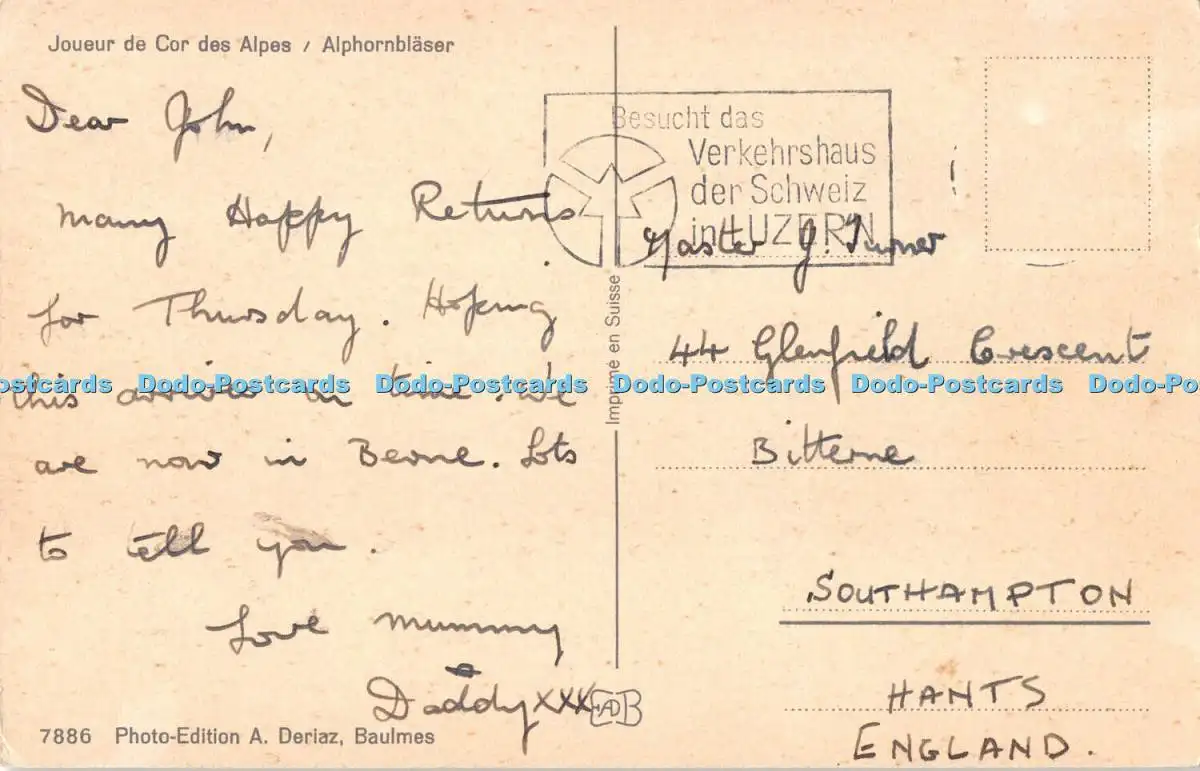 Joueur de Cor des Alpes / Alphornbläser
Dear John,
Many Happy Returns
for Thursday. Hoping
this arrives in time. We
are now in Berne. Lots
to tell you.
Love Mummy
Daddy xxx
7886 Photo-Edition A. Deriaz, Baulmes
Imprimé en Suisse
EDAB
Besucht das
Verkehrshaus
der Schweiz
in LUZERN
Master J. Turner
44 Glenfield Crescent
Bitterne
SOUTHAMPTON
HANTS
ENGLAND.
ostcards Dodo-Postcards Dodo-Postcards Dodo-Postcards Dodo-Postcards Dodo-Post